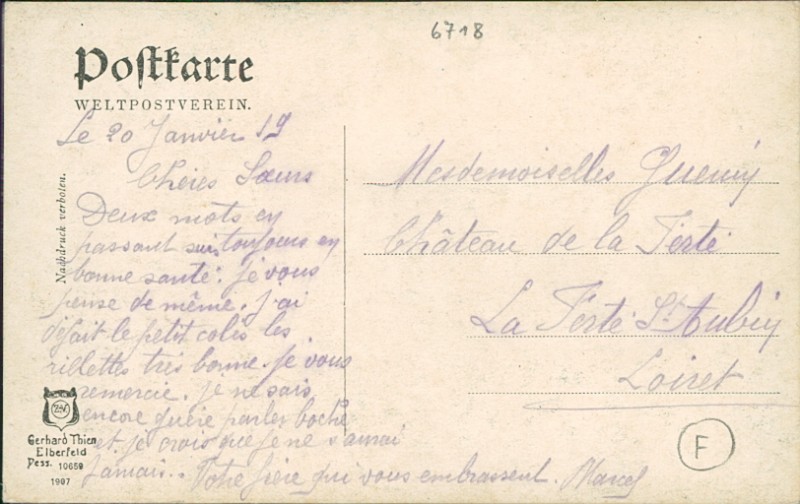 6718
Postkarte
WELTPOSTVEREIN.
Le 20 Janvier 19
Cheres Sœurs
Deux mots en
passant suis toujours en
bonne santé. je vous
pense de même. j'ai
défait le petit colis les
rillettes très bonne. je vous
remercie. je ne sais
encore guère parler boche
et je crois que je ne s'aurai
Jamais.. Votre frère qui vous embrassent. Marcel
Nachdruck verboten.
Mesdemoiselles
Château de la Ferté
La Ferté St Aubin
Loiret
F
Gerhard Thien
Elberfeld
Dess. 10659
1907